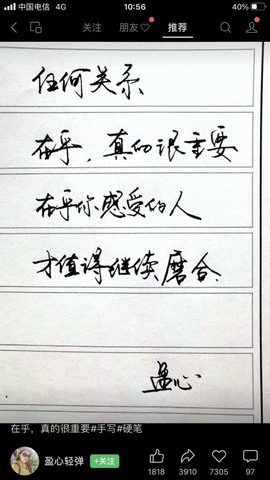 中国电信 4G 10:56 40%
关注 朋友♡ 推荐
任何关系
在乎，真的很重要
在乎你感受的人
才值得继续磨合.
盈心
在乎，真的很重要#手写#硬笔
盈心轻弹 +关注
1818 3910 7305 97